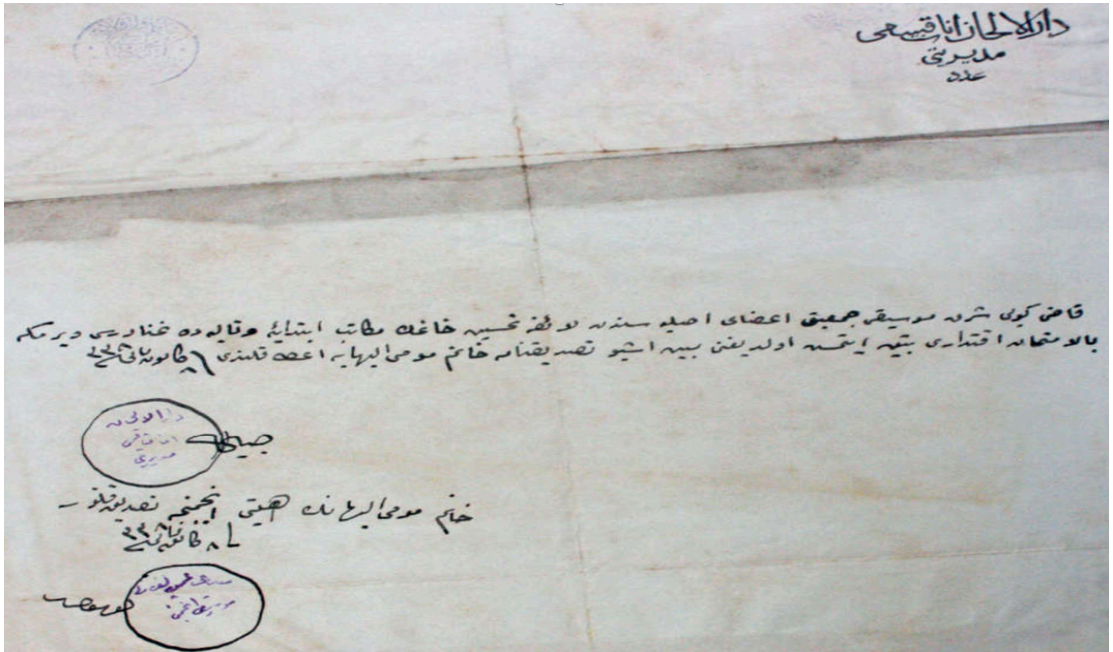 دارالالحان اناث قسمی
مدیریتی
عدد
قاضی کویی شرق موسیقی جمعیتی اعضای اصلیه سندن لائقه تحسین خانمك مکاتب ابتدائیه و تالیه ده غنا درسی ویرمکه
بالامتحان اقتداری تبین ایتمش اولدیغنی مبین اشبو تصدیقنامه خانم مومی الیهایه اعطا قلندی ٨ کانون ثانی ٣٣٨
دارالالحان
اناث قسمی
مدیریتی
خانم مومی الیهانك اهلیتی انجمنجه تصدیق قلنور
٨ کانون ثانی ٣٣٨
موسیقی انجمنی